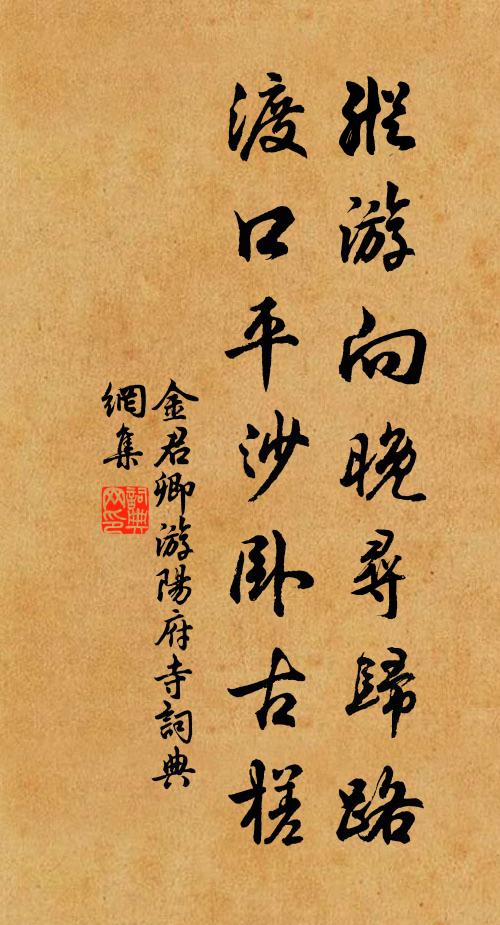 縱游向晚尋歸路
渡口平沙卧古槎
金君卿游陽府寺詞典
網集
詞典网印